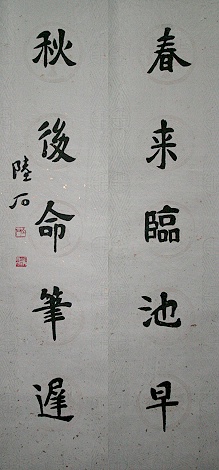 春来臨池早
秋後命筆遲
陸石